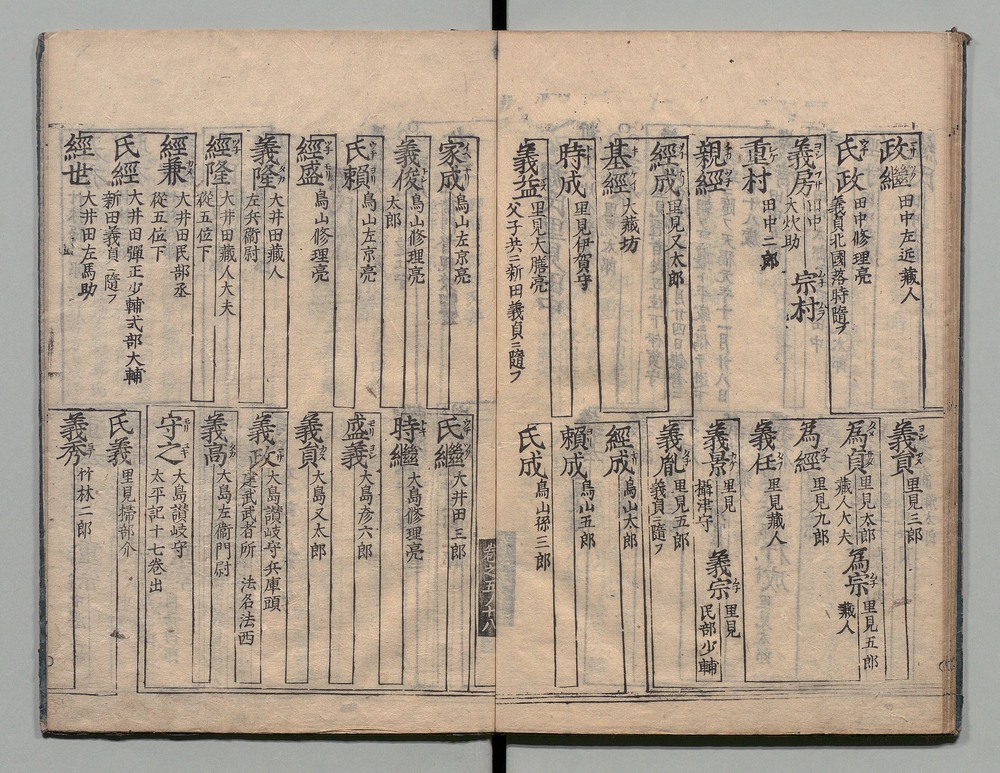 政繼 田中左近藏人
氏政 田中修理亮
義貞北國落時隨フ
義房 田中
大炊助
宗村
重村 田中二郎
親經
經成 里見又太郎
基經 大藏坊
時成 里見伊賀守
義益 里見大膳亮
父子共ニ新田義貞ニ隨フ
義貞 里見三郎
為貞 里見太郎
藏人大夫
為宗 里見五郎
藏人
為經 里見九郎
義任 里見藏人
義景 里見
攝津守
義宗 里見
民部少輔
義胤 里見五郎
義貞ニ隨フ
經成 鳥山太郎
賴成 鳥山五郎
氏成 鳥山孫三郎
家成 鳥山左京亮
義俊 鳥山修理亮
太郎
氏賴 鳥山左京亮
經盛 鳥山修理亮
義隆 大井田藏人
左兵衞尉
經隆 大井田藏人大夫
從五位下
經兼 大井田民部丞
從五位下
氏經 大井田彈正少輔式部大輔
新田義貞ニ隨フ
經世 大井田左馬助
氏繼 大井田三郎
時繼 大島修理亮
盛義 大島彦六郎
義貞 大島又太郎
義政 大島讃岐守兵庫頭
建武武者所 法名法西
義高 大島左衞門尉
守之 大島讃岐守
太平記十七卷出
氏義 里見掃部介
義秀 竹林二郎